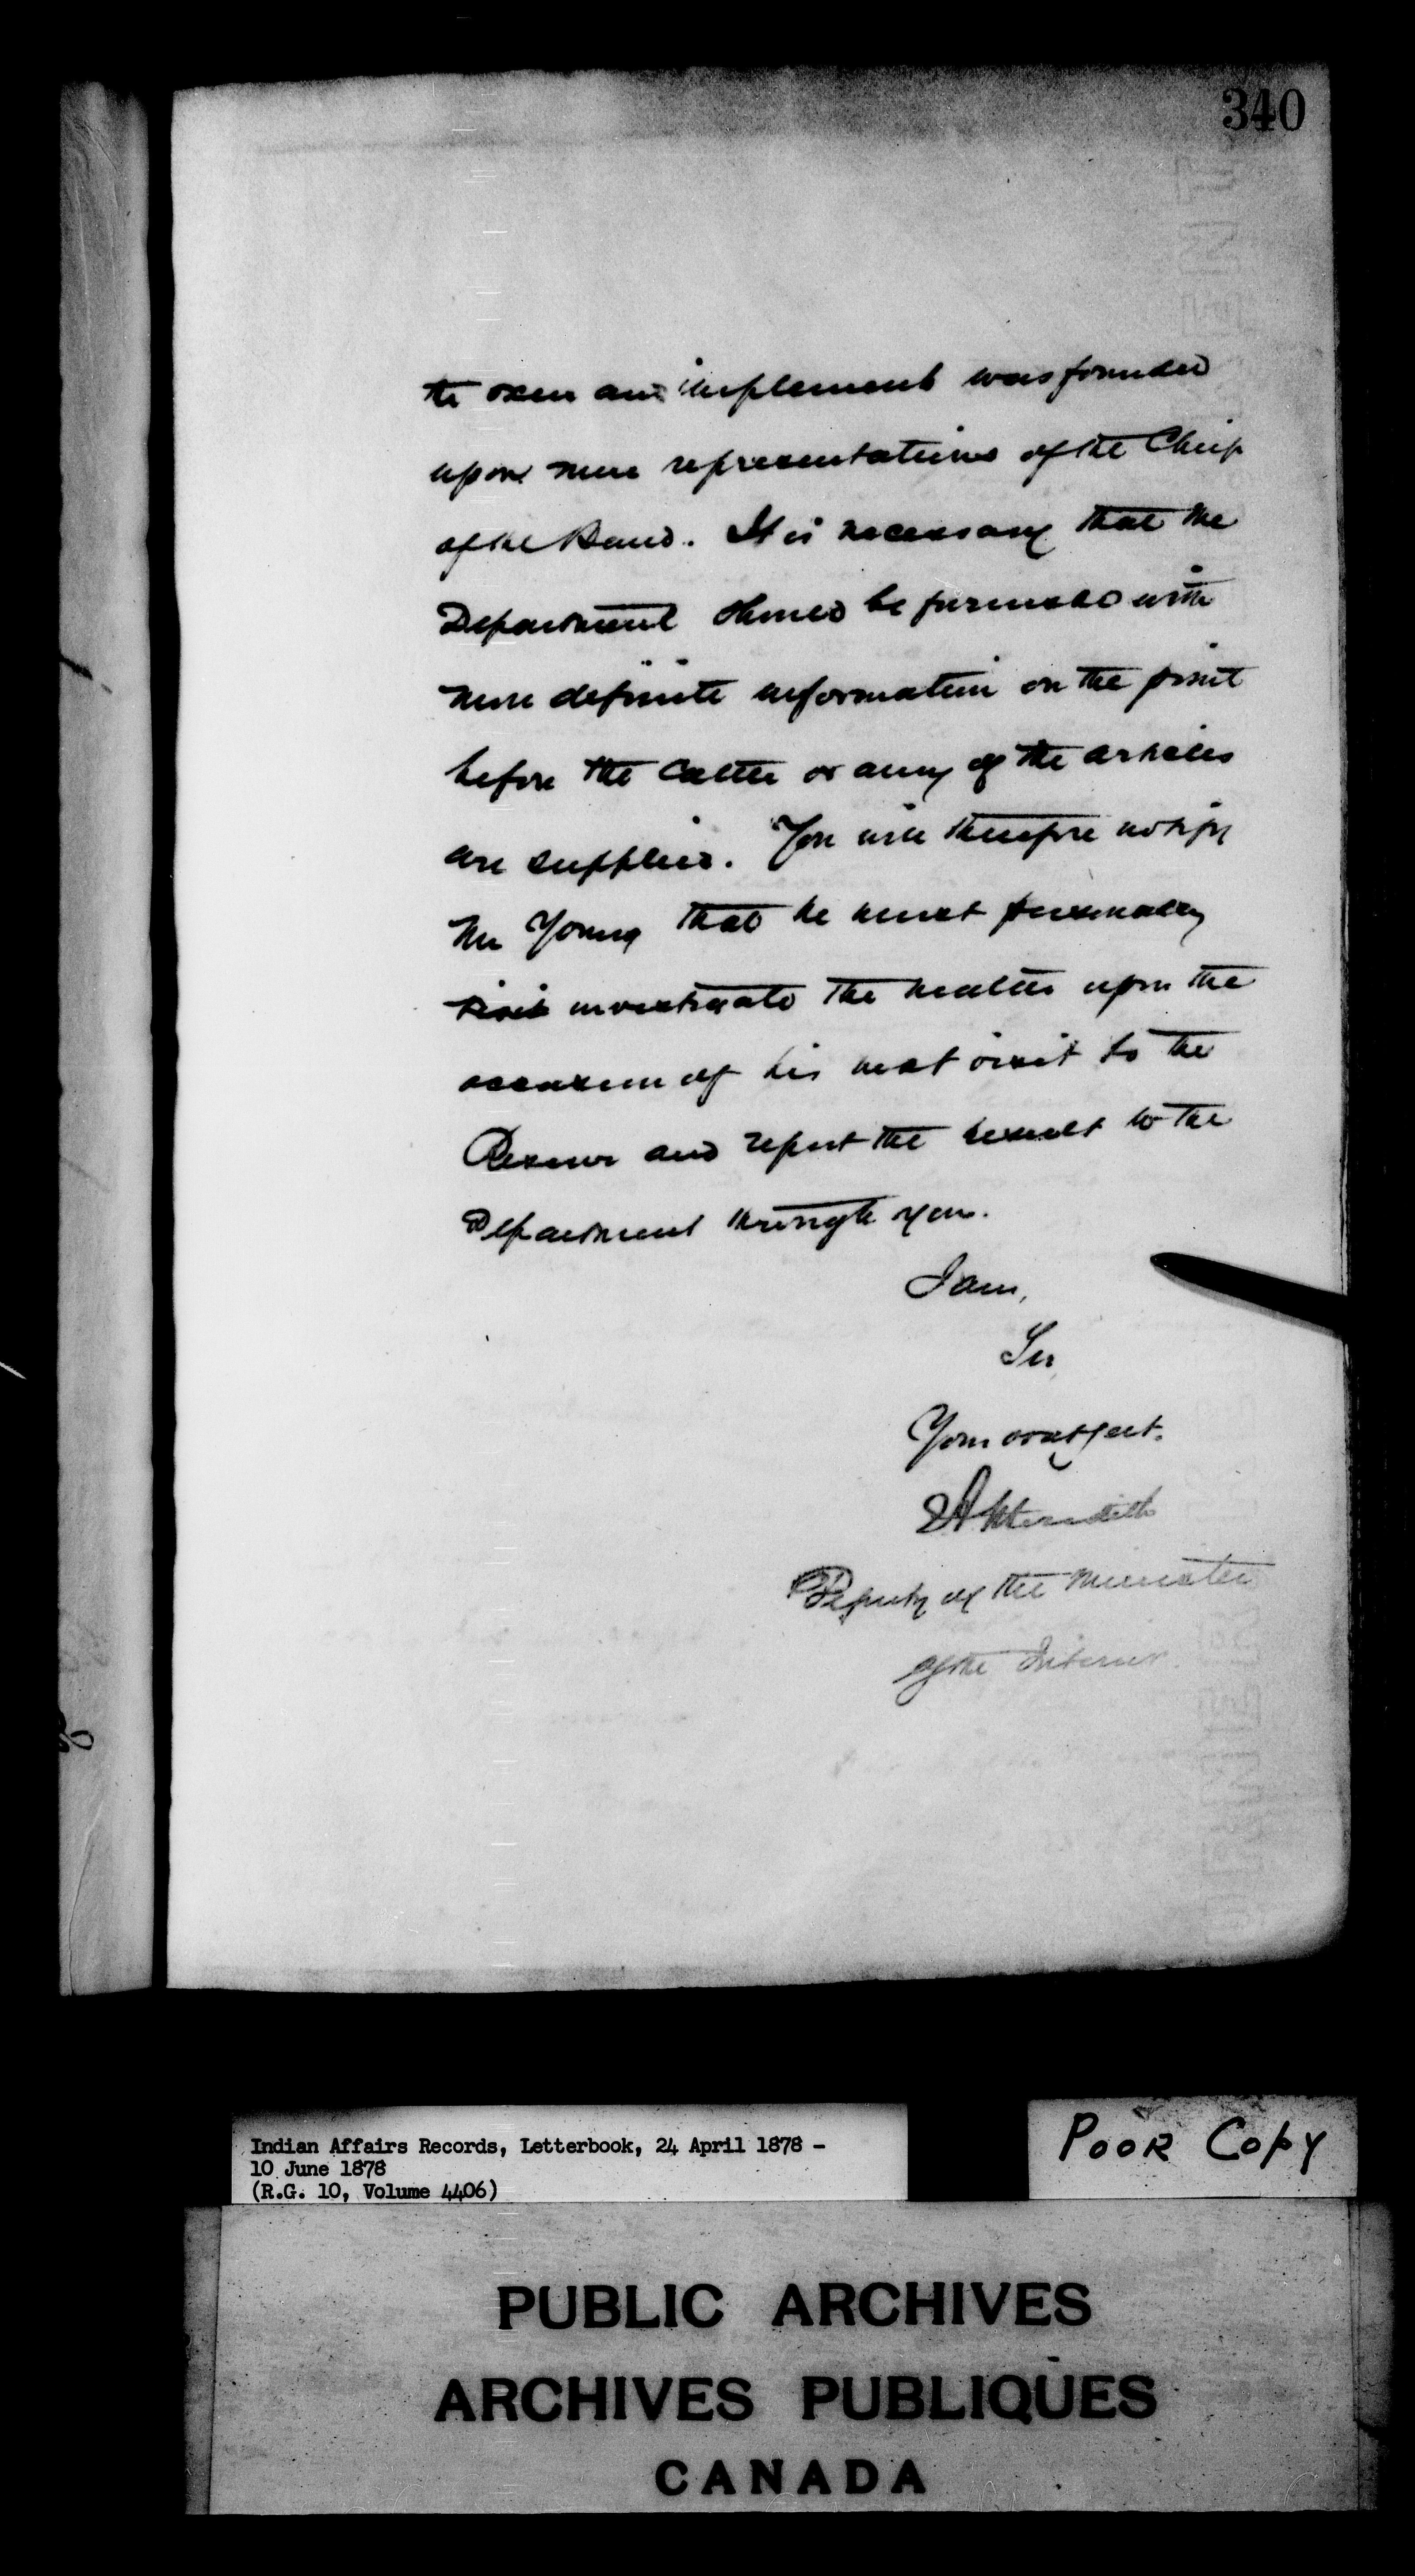 340
the oxen and implements was founded
upon mere representations of the Chief
of the Band. It is necessary that the
Department should be furnished with
more definite information on the point
before the Cattle or any of the articles
are supplied. You will therefore notify
Mr Young that he must personally
visit investigate the matter upon the
occasion of his next visit to the
Reserve and report the result to the
Department through you.
I am,
Sir
Your obdt servt.
EA Meredith
Deputy of the Minister
of the Interior
Indian Affairs Records, Letterbook, 24 April 1878 -
10 June 1878
(R.G. 10, Volume 4406)
POOR COPY
PUBLIC ARCHIVES
ARCHIVES PUBLIQUES
CANADA